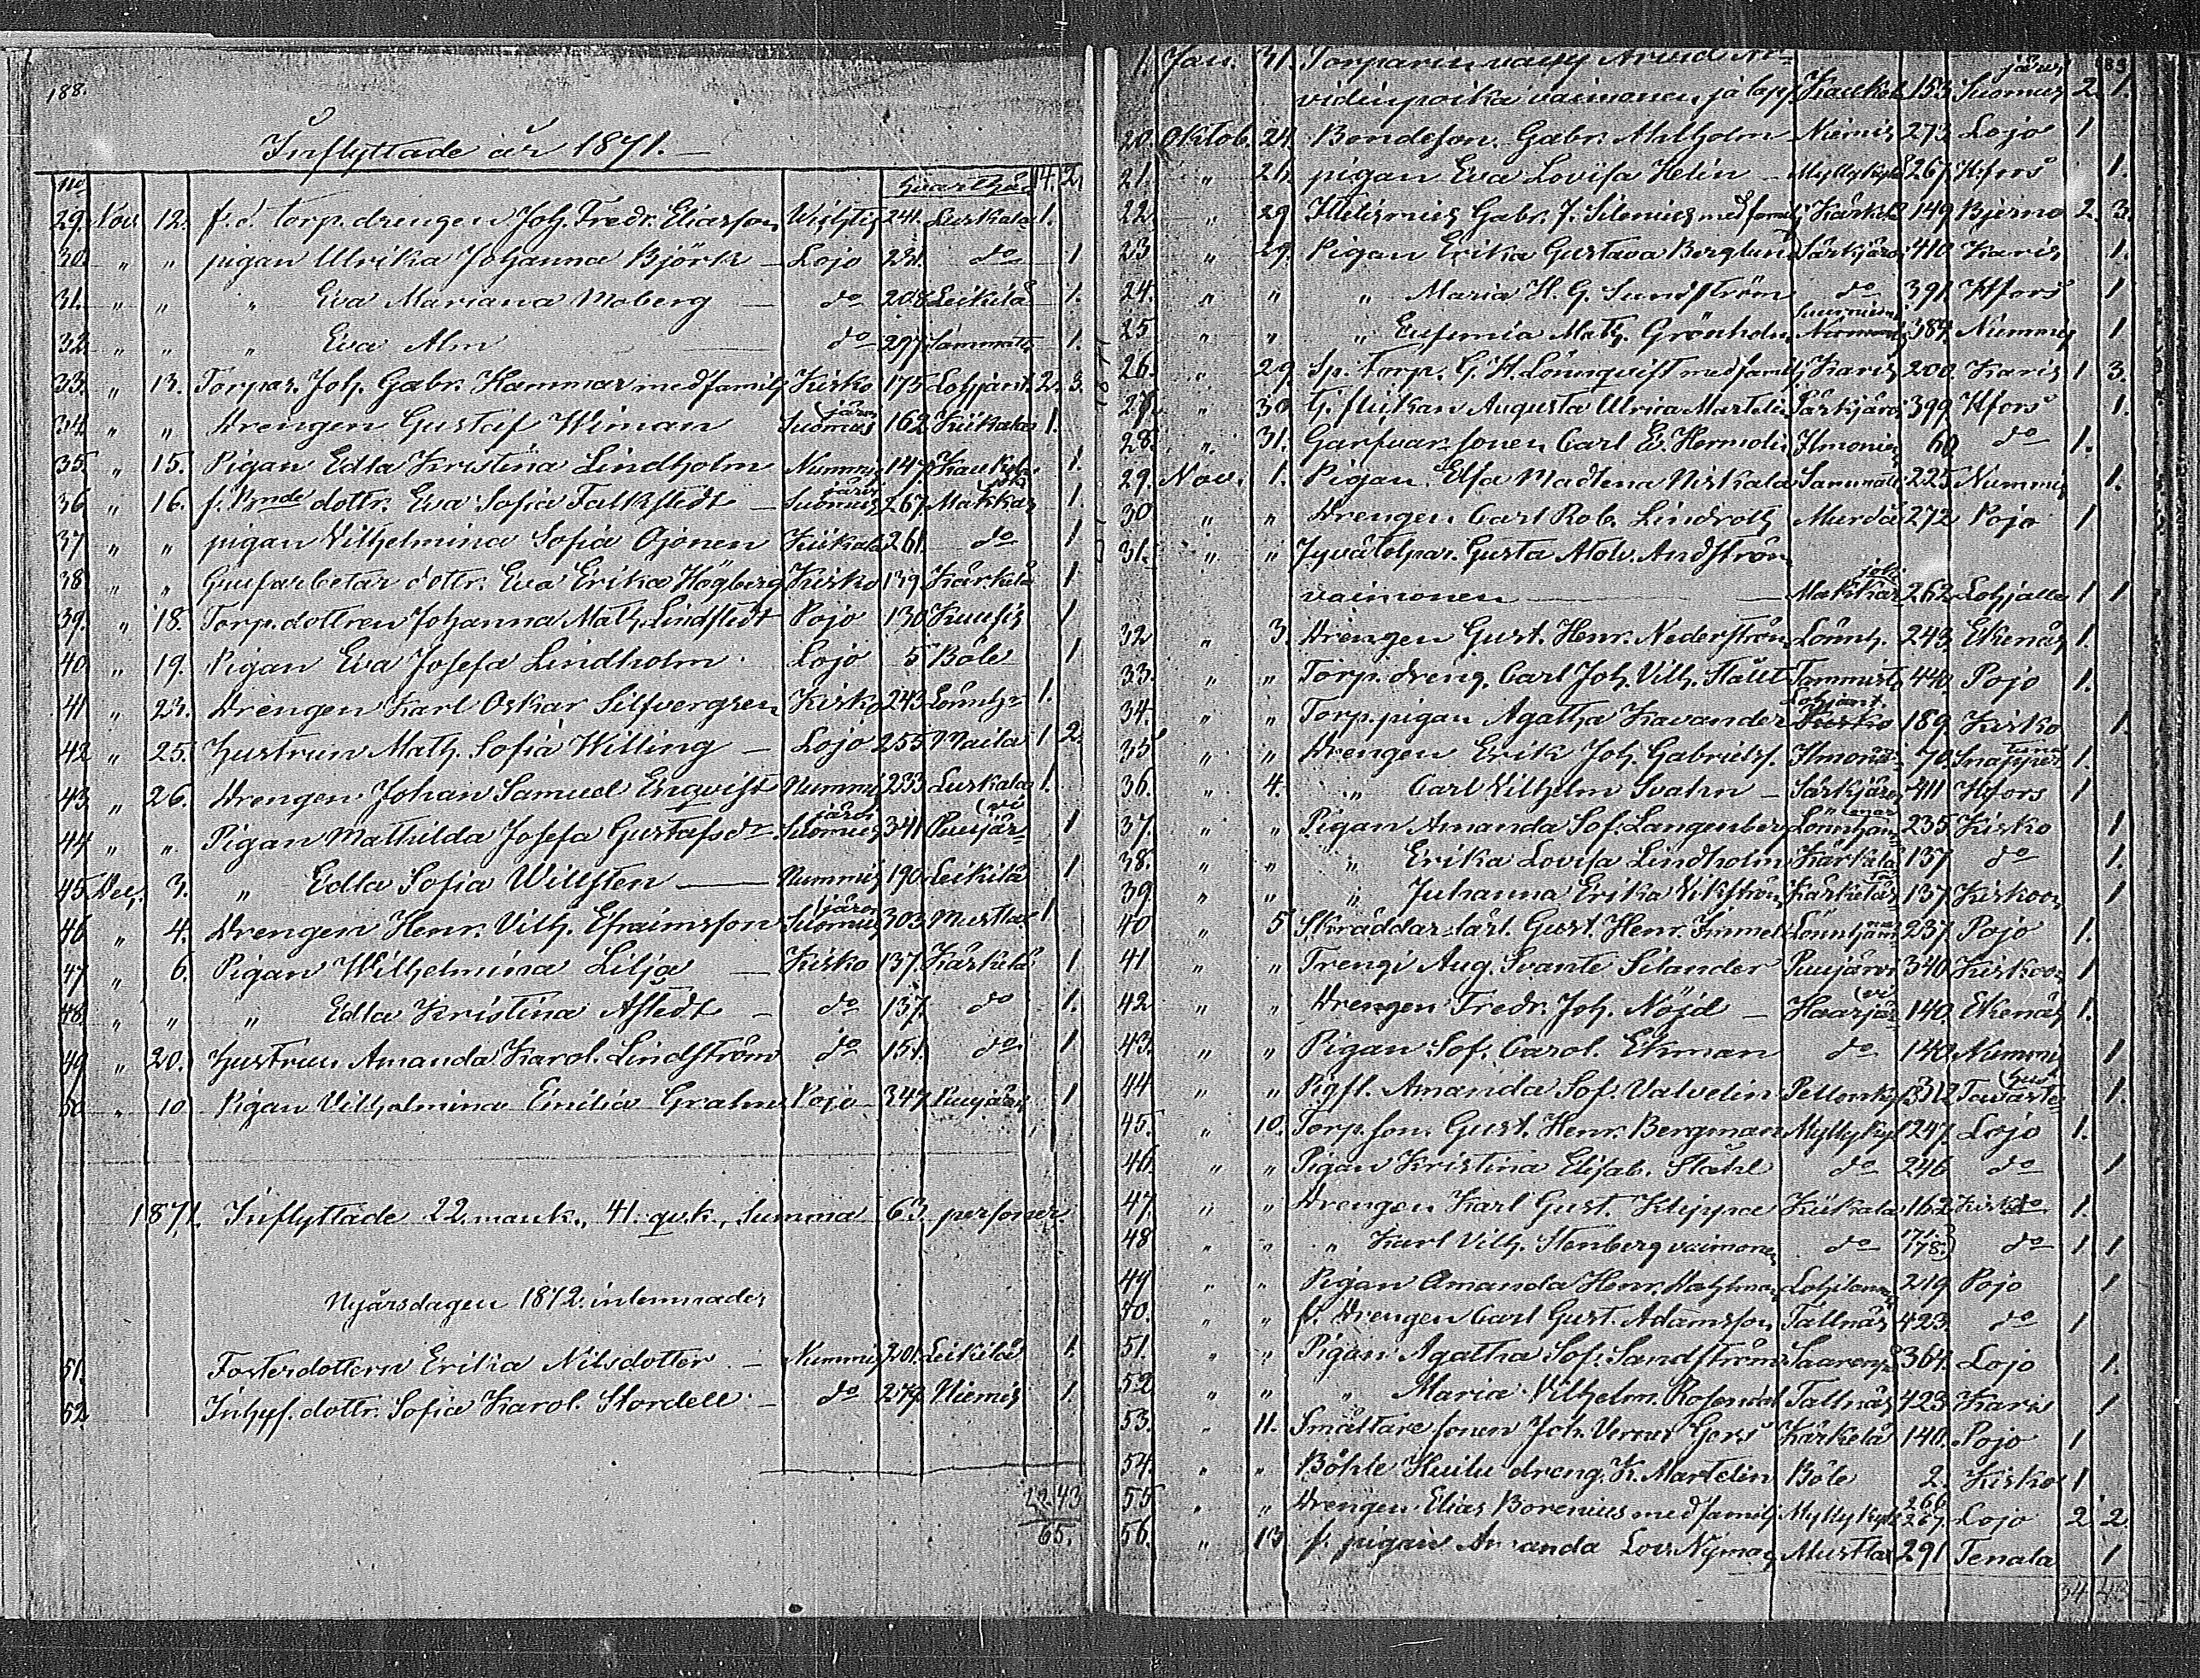 188.
Inflyttade år 1871.
No hvarthän M. Q.
29. Nov. 12. f.d. torp. drengen Joh. Fredr. Eliasson Wichtis 241. Luskala 1.
30. " " pigan Ulrika Johanna Björk – Lojo 221. do 1
31. " " " Eva Mariana Moberg – do 208 Leikilä 1.
32. " " " Eva Alm do 297 Sammatti 1.
33. " 13. Torpar. Joh. Gabr. Hammar med familj Kisko 175 Lohjant. 2. 3.
34. " " Drengen Gustaf Wiman Suomusjärvi 162 Kiikala 1.
35. " 15. Pigan Edla Kristina Lindholm Nummis 147. Kaukola 1.
36 " 16. f. Bonde dottr. Eva Sofia Falkstedt – Suomusjärvi 267 Makkarjoki 1.
37 " " pigan Vilhelmina Sofia Ojonen Kiikala 261. do 1
38. " " Grufarbetar dottr. Eva Erika Högberg Kisko 139 Kärkelä 1
39. " 18. Torp. dottren Johanna Math. Lindstedt Pojo 130 Kuusis 1
40. " 19. Pigan Eva Josefa Lindholm Lojo 5 Böle 1
41 " 23. Drengen Karl Oskar Silfvergren Kisko 243 Lönnh. 1.
42 " 25. Hustrun Math. Sofia Willing – Lojo 255 Maila 1 2.
43 " 26. Drengen Johan Samuel Enqvist Nummis 233 Luskala 1.
44 " " Pigan Mathilda Josefa Gustafsdr. Suomusjärvi 341 Puujärvi 1
45 Dec. 3. " Edla Sofia Willsten – Nummis 190 Leikilä 1
46 " 4. Drengen Henr. Vilh. Efraimsson Suomusjärvi 303 Mustla 1
47 " 6. Pigan Wilhelmina Lilja – Kisko 137. Kärkelä 1
48. " " " Edla Kristina Afstedt – do 137. do 1.
49 " 20. Hustrun Amanda Karol. Lindström do 151. do 1
50. " 10 Pigan Vilhelmina Emilia Grahn Pojo 347. Puujärvi 1
1871. Inflyttade 22 mank., 41. qvk., Summa 63 personer.
Nyårsdagen 1872. inlemnades
51. Fosterdottern Erika Nilsdotter – Nummis 201. Leikilä 1.
52. Inhys. dottr. Sofia Karol. Stordell – do 274. Niemis 1.
22. 43
65.
1. Jan. 31. Torparin vävy Arvid Ar-
vidinpoika vaimonen ja laps. Kaukola 153 Suomusjärvi 2. 1.
20. Oktob. 24. Bondeson. Gabr. Ahlholm Niemis 273 Lojo 1
21. " 26. pigan Eva Lovisa Helin – Myllykylä 267 Hfors 1.
22. " 29 Gabr. J. Silenius med familj Kärkelä 149 Bjerno 2. 3.
23 " 29. Pigan Erika Gustava Berglund Särkjärvi 410 Karis 1.
24. " " " Maria H. G. Sundström do 391 Hfors 1
25 " " " Eufemia Math. Grönholm 384 Nummis 1
26. " 29. Sp. Torp. G. H. Lönnqvist med familj Karis 200. Karis 1 3.
27. " 30 Tj. flickan Augusta Ulrica Martelin Särkjärvi 399 Hfors 1.
28. " 31. Garfvar sonen Carl E. Hermolin Ilmonie 60 do 1.
29. Nov. 1. Pigan. Elsa Madlena Niskala Sammatti 225 Nummis 1.
30 " " Drengen Carl Rob. Lindroth Murdä 272 Pojo 1
31. " " Jyvätorpar. Gusta Adolv. Andström
vaimonen – Makkarjoki 262 Lohjalle 1 1
32 " 3. Drengen Gust. Henr. Nederström Lönnh. 243 Ekenäs 1.
33. " " Torp. dreng. Carl Joh. Vilh. Stålt Tammisto 440. Pojo 1.
34. " " Torp. pigan Agatha Kavander Lohjant. 189. Kisko 1.
35 " " Drengen Erik Joh. Gabrielss. Ilmonie 70 Snappertuna 1.
36. " 4. " Carl Vilhelm Svahn – Särkjärvi 411 Hfors 1
37. " " Pigan Amanda Sof. Langenberg Lönnham 235 Kisko 1
38. " " " Erika Lovisa Lindholm Kärkelä 137 do 1.
39. " " " Juhanna Erika Vikström Kärkelä 137 Kiskoon 1
40 " 5 Skräddar lärl. Gust. Henr. Immel Lönnham 237. Pojo 1.
41 " " Trengi Aug. Svante Silander Puujärvi 340 Kiskoon 1
42 " " Drengen Fredr. Joh. Nöjd – Haarjärvi 140. Ekenäs 1.
43. " " Pigan Sof. Carol. Ekman do 140 Nummis 1
44 " " Pigfl. Amanda Sof. Valvelin Pellonkylä 312 Tavastehus 1.
45. " 10. Torp. son. Gust. Henr. Bergman Myllykyl. 247. Lojo 1.
46. " " Pigan Kristina Elisab. Ståhl do 246 do 1
47. " " Drengen Karl Gust. Klippa Kiikala 162 do 1.
48 " " " Karl Vilh. Stenberg vaimonen do 178. do 1 1
49 " " Pigan Amanda Henr. 219 Pojo 1
50. " " f. Drengen Carl Gust. Adamsson Tallnäs 423. do 1
51. " " Pigan Agatha Sof. Sandström Saarenpä 364. Lojo 1.
52 " " " Maria Vilhelm. Tallnäs 423 Karis 1
53. " 11. Smältare sonen Joh. Verner Gers Kärkelä 140. Pojo 1
54. " " Böhle Huilu dreng. K. Martelin Böle 2. Kisko 1
55 " " Drengen Elias Borenius med familj Myllykyl. 266 267 Lojo 2. 2.
56. " 13 f. pigan Amanda Lov. Nyman Mustla 291 Tenala 1
54 43